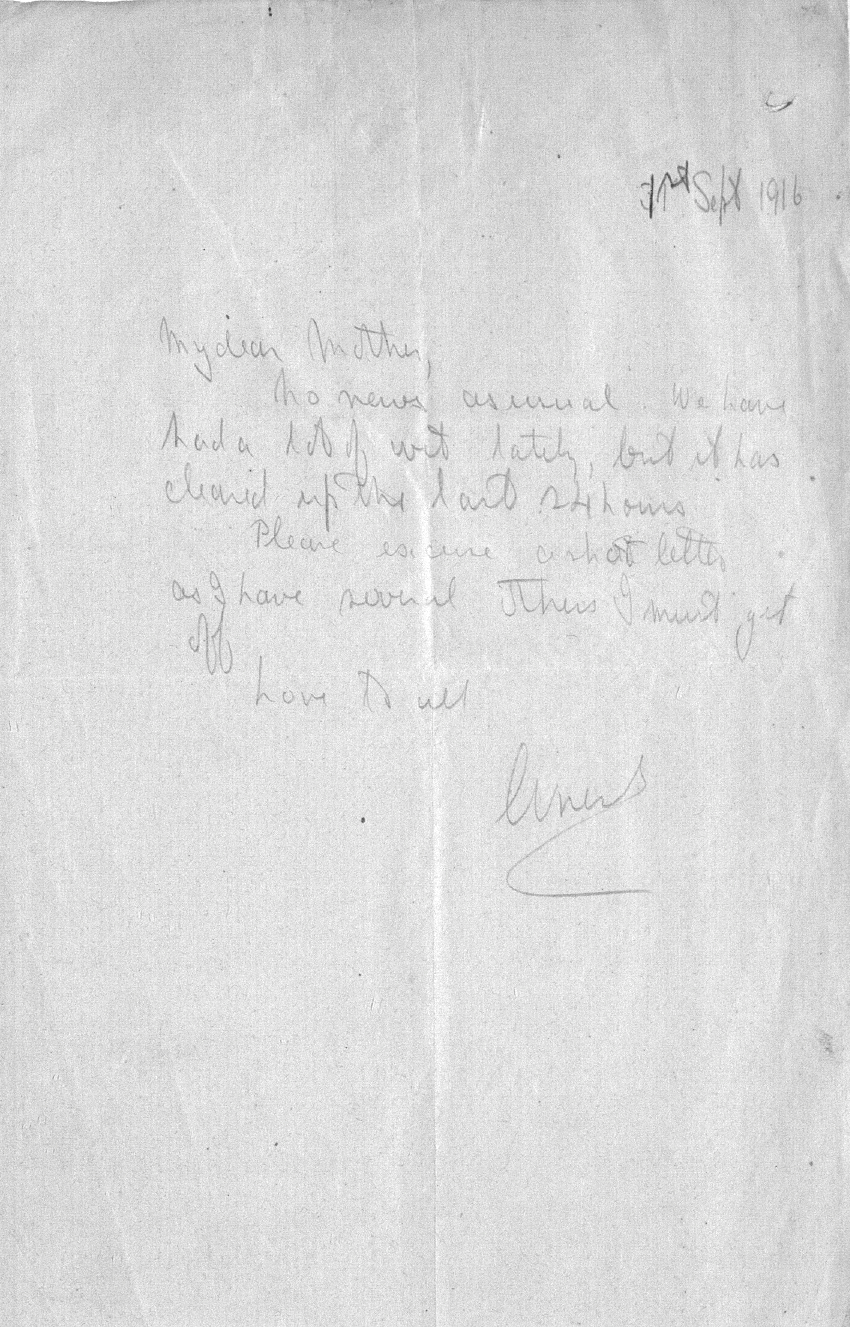 1st Sept 1916
My dear Mother,
No news as usual. We have
had a lot of wet lately, but it has
cleared up the last 24 hours
Please excuse a short letter
as I have several others I must get
off
Love to all